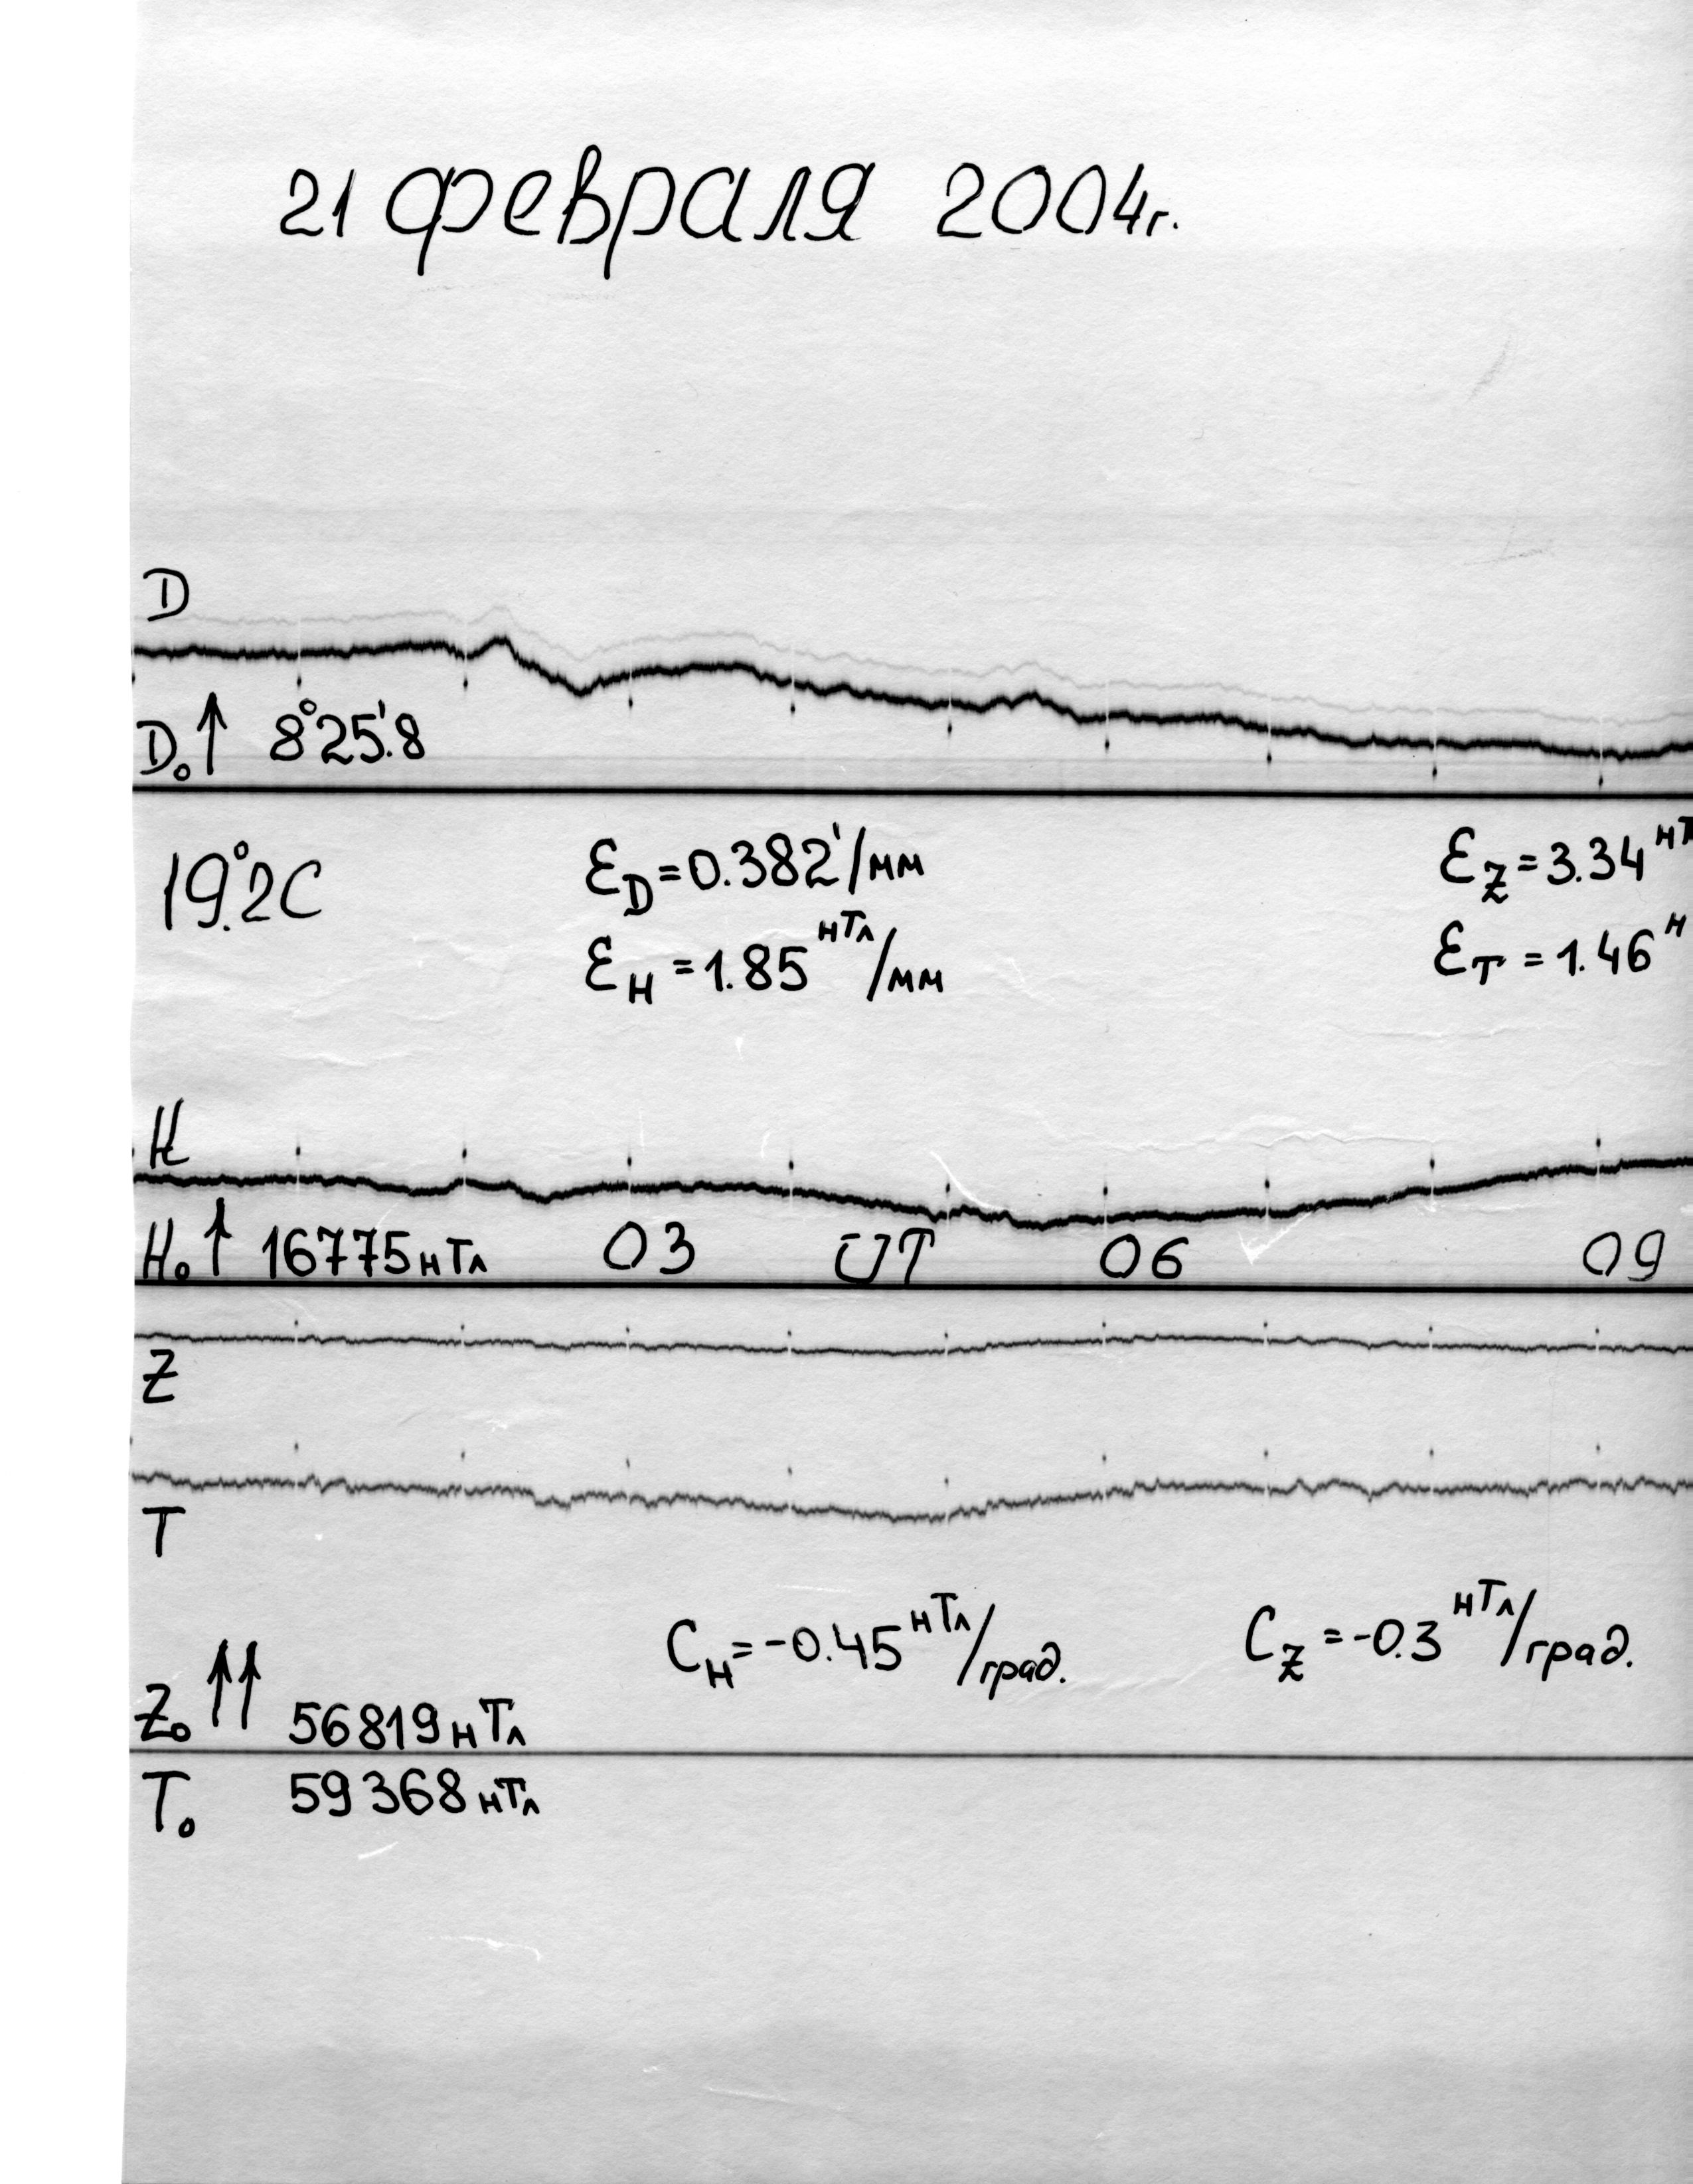 21 февраля 2004г.
D
D₀ ↑ 8°25'.8
19°.2C
ε_D=0.382'/мм
ε_Z=3.34 нТ
ε_H=1.85 нТл/мм
ε_T=1.46 н
H
H₀ ↑ 16775нТл 03 UT 06 09
Z
T
C_H=-0.45 нТл/град.
C_Z=-0.3 нТл/град.
Z₀ ↑↑ 56819нТл
T₀ 59368нТл